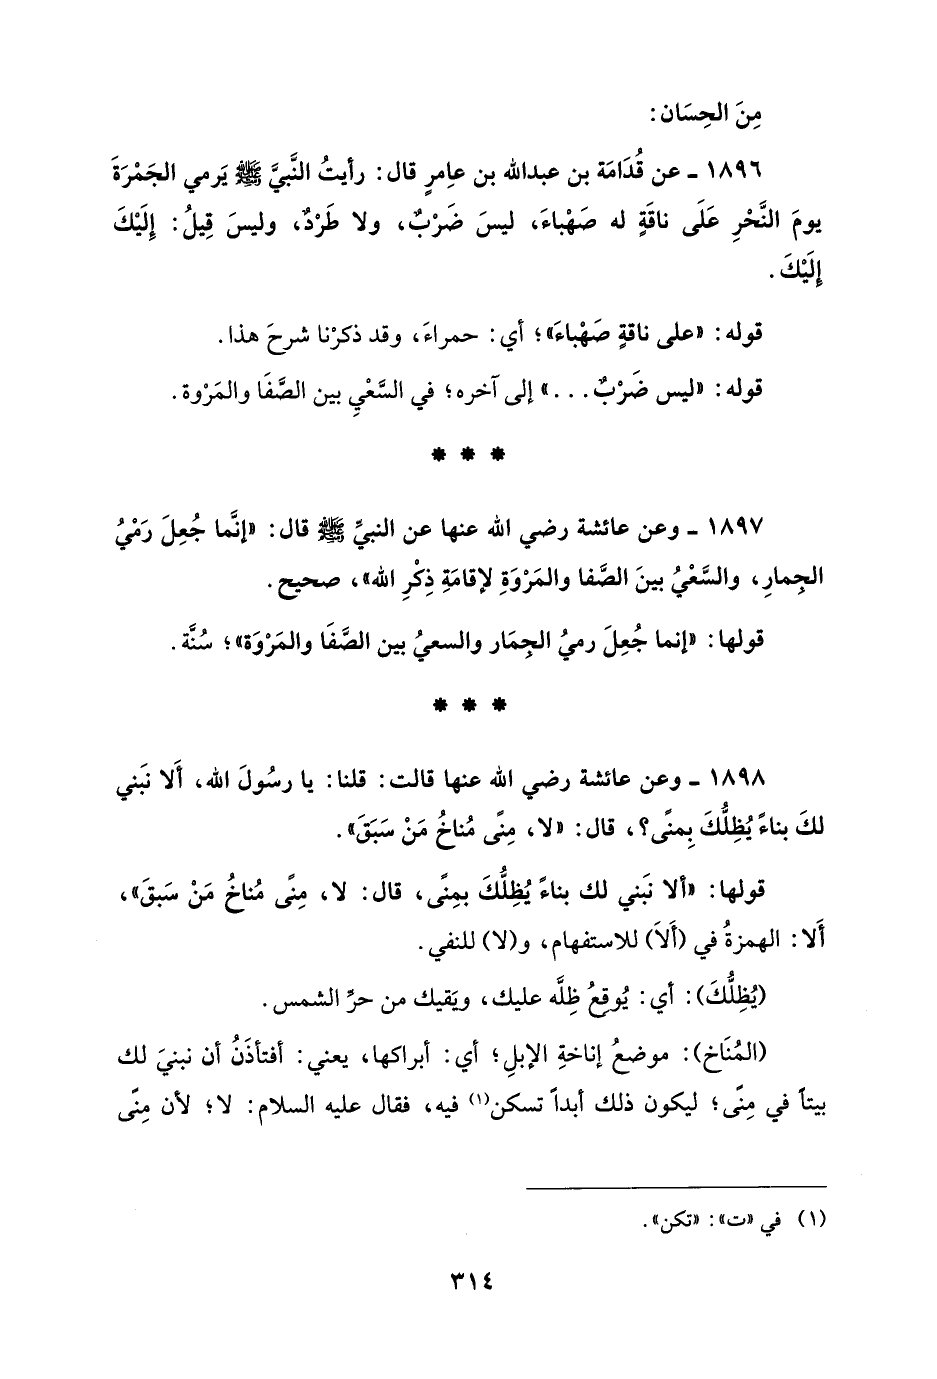 مِنَ الحِسَان:
١٨٩٦ ـ عن قُدَامَة بن عبدالله بن عامرٍ قال: رأيتُ النَّبيَّ ﷺ يَرمي الجَمْرَةَ
يومَ النَّحْرِ عَلَى ناقَةٍ له صَهْباءَ، ليسَ ضَرْبٌ، ولا طَرْدٌ، وليسَ قِيلُ: إِلَيْكَ
إِلَيْكَ.
قوله: «على ناقةٍ صَهْباءَ»؛ أي: حمراءَ، وقد ذكرْنا شرحَ هذا.
قوله: «ليس ضَرْبٌ...» إلى آخره؛ في السَّعْيِ بين الصَّفَا والمَرْوة.
* * *
١٨٩٧ ـ وعن عائشة رضي الله عنها عن النبيِّ ﷺ قال: «إنَّما جُعِلَ رَمْيُ
الجِمارِ، والسَّعْيُ بينَ الصَّفا والمَرْوَةِ لإقامَةِ ذِكْرِ الله»، صحيح.
قولها: «إنما جُعِلَ رميُ الجِمَار والسعيُ بين الصَّفَا والمَرْوَة»؛ سُنَّة.
* * *
١٨٩٨ ـ وعن عائشة رضي الله عنها قالت: قلنا: يا رسُولَ الله، أَلا نَبني
لكَ بناءً يُظِلُّكَ بِمنًى؟، قال: «لا، مِنًى مُناخُ مَنْ سَبَقَ».
قولها: «ألا نَبني لك بناءً يُظِلُّكَ بمِنًى، قال: لا، مِنًى مُناخُ مَنْ سَبقَ»،
أَلا: الهمزةُ في (أَلاَ) للاستفهام، و(لا) للنفي.
(يُظِلُّكَ): أي: يُوقِعُ ظِلَّه عليك، ويَقيك من حرِّ الشمس.
(المُنَاخ): موضعُ إناخةِ الإبلِ؛ أي: أبراكها، يعني: أفتأذَنُ أن نبنيَ لك
بيتاً في مِنًى؛ ليكون ذلك أبداً تسكن(١) فيه، فقال عليه السلام: لا؛ لأن مِنًى
(١) في «ت»: «تكن».
٣١٤